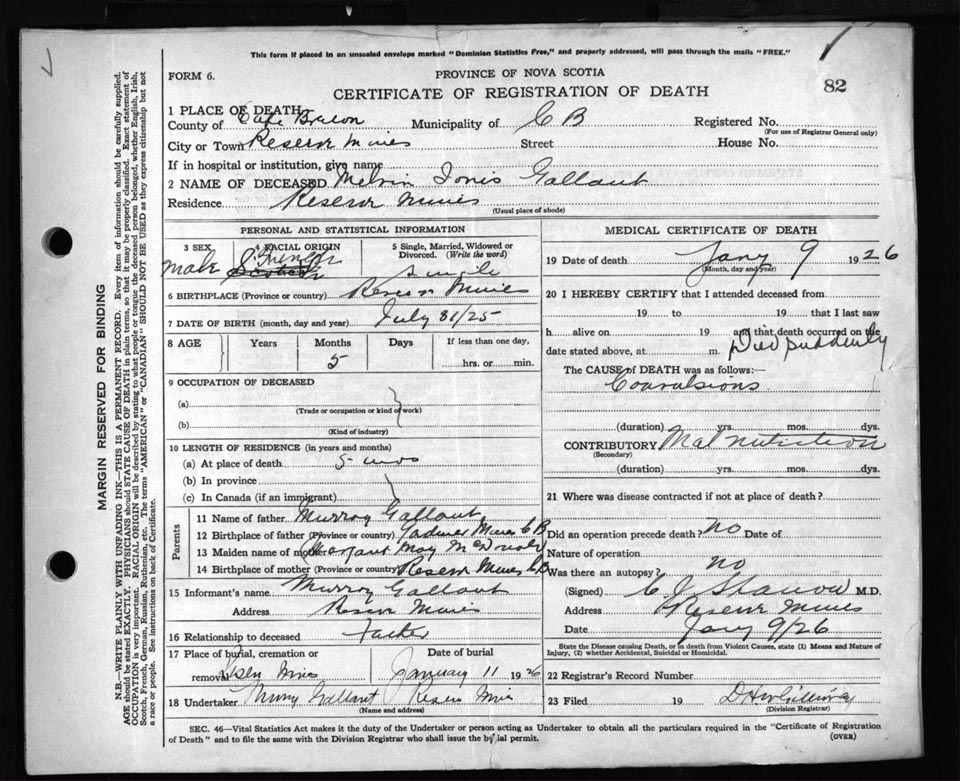 This form if placed in an unsealed envelope marked "Dominion Statistics Free," and properly addressed, will pass through the mails "FREE."
FORM 6.
PROVINCE OF NOVA SCOTIA
CERTIFICATE OF REGISTRATION OF DEATH
82
MARGIN RESERVED FOR BINDING
N.B.—WRITE PLAINLY WITH UNFADING INK—THIS IS A PERMANENT RECORD. Every item of information should be carefully supplied.
AGE should be stated EXACTLY. PHYSICIANS should STATE CAUSE OF DEATH in plain terms, so that it may be properly classified. Exact statement of
OCCUPATION is very important. RACIAL ORIGIN will be described by stating to what people or tongue the deceased person belonged, whether English, Irish,
Scotch, French, German, Russian, Ruthenian, etc. The terms "AMERICAN" or "CANADIAN" SHOULD NOT BE USED as they express citizenship but not
a race or people. See instructions on back of Certificate.
1 PLACE OF DEATH
County of Cape Breton Municipality of C B Registered No.
(For use of Registrar General only)
City or Town Reserve Mines Street House No.
If in hospital or institution, give name
2 NAME OF DECEASED Melvin Gallant
Residence Reserve Mines
(Usual place of abode)
PERSONAL AND STATISTICAL INFORMATION
3 SEX 4 RACIAL ORIGIN 5 Single, Married, Widowed or Divorced. (Write the word)
male French single
6 BIRTHPLACE (Province or country) Reserve Mines
7 DATE OF BIRTH (month, day and year) July 31/25
8 AGE Years Months Days If less than one day,
5 hrs. or min.
9 OCCUPATION OF DECEASED
(a)
(Trade or occupation or kind of work)
(b)
(Kind of industry)
10 LENGTH OF RESIDENCE (in years and months)
(a) At place of death 5 mos
(b) In province
(c) In Canada (if an immigrant)
Parents
11 Name of father Murray Gallant
12 Birthplace of father (Province or country) Mines C B
13 Maiden name of mother Margaret May
14 Birthplace of mother (Province or country) Reserve Mines C B
15 Informant's name Murray Gallant
Address Reserve Mines
16 Relationship to deceased Father
17 Place of burial, cremation or Date of burial
removal Mines January 11 1926
18 Undertaker Murray Gallant Reserve Mines
(Name and address)
MEDICAL CERTIFICATE OF DEATH
19 Date of death Jany 9 1926
(Month, day and year)
20 I HEREBY CERTIFY that I attended deceased from
19 to 19 that I last saw
h alive on 19 and that death occurred on the
date stated above, at m. Died suddenly
The CAUSE of DEATH was as follows:—
Convulsions
(duration) yrs. mos. dys.
CONTRIBUTORY Mal nutrition
(Secondary)
(duration) yrs. mos. dys.
21 Where was disease contracted if not at place of death?
Did an operation precede death? no Date of
Nature of operation
Was there an autopsy? no
(Signed) M.D.
Address Reserve Mines
Date Jany 9/26
State the Disease causing Death, or in death from Violent Causes, state (1) Means and Nature of
Injury, (2) whether Accidental, Suicidal or Homicidal.
22 Registrar's Record Number
23 Filed 19
(Division Registrar)
SEC. 46—Vital Statistics Act makes it the duty of the Undertaker or person acting as Undertaker to obtain all the particulars required in the "Certificate of Registration
of Death" and to file the same with the Division Registrar who shall issue the burial permit. (OVER)